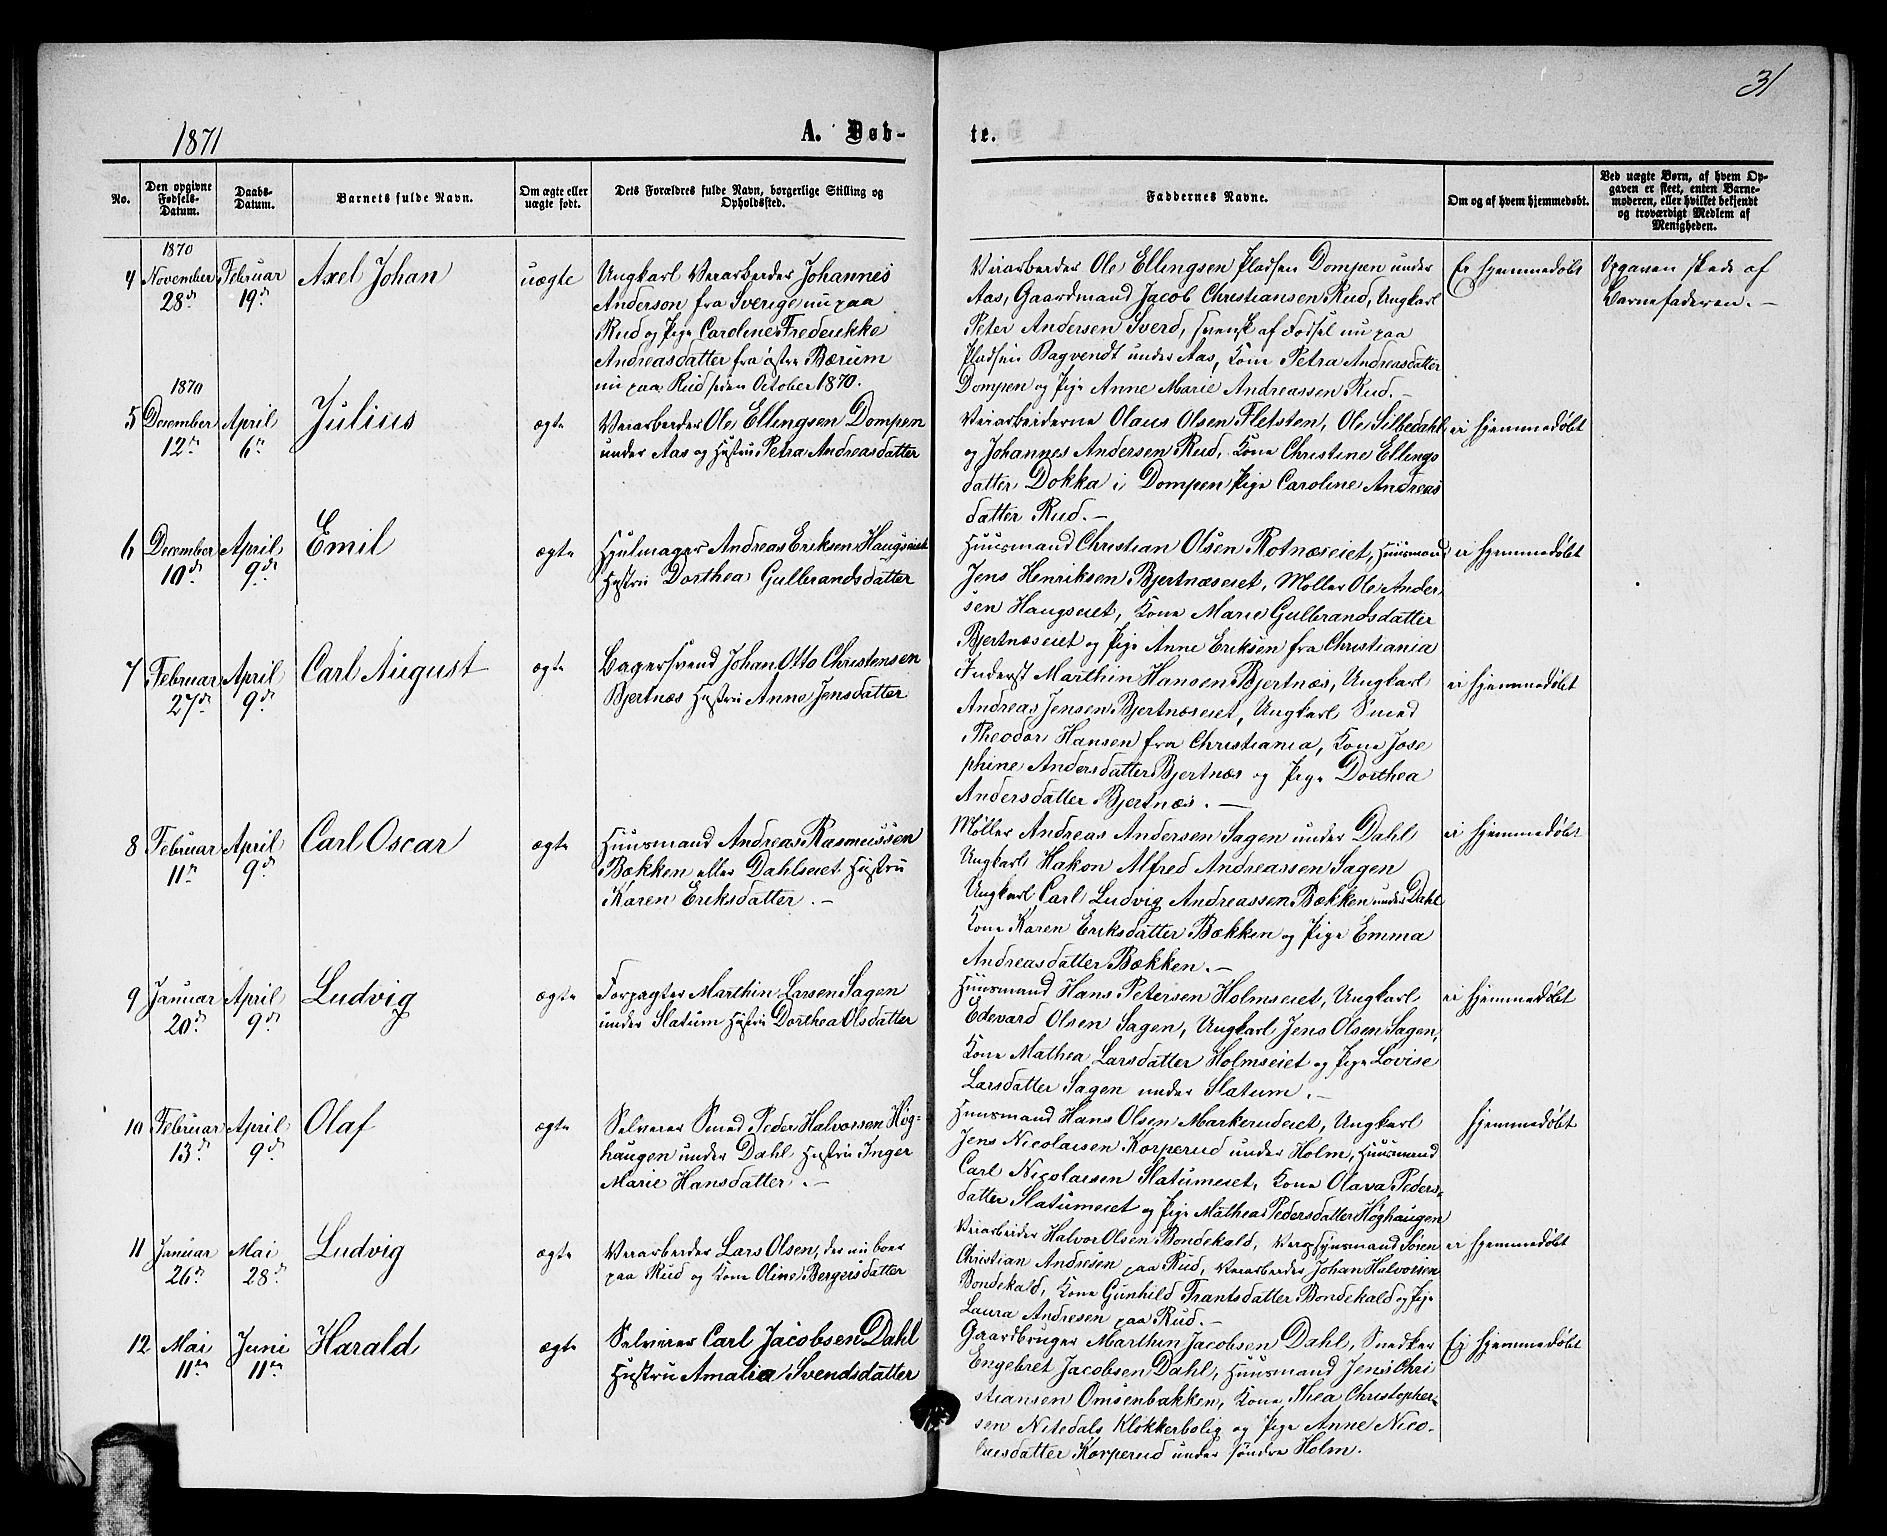 31
1871
A. Døb-
te.
No.
Den opgivne
Fødsels-
Datum.
Daabs-
Datum.
Barnets fulde Navn.
Om ægte eller
uægte født.
Dets Forældres fulde Navn, borgerlige Stilling og
Opholdssted.
Faddernes Navne.
Om og af hvem hjemmedøbt.
Ved uægte Børn, af hvem Op-
gaven er skeet, enten Barne-
moderen, eller hvilket bekjendt
og troværdigt Medlem af
Menigheden.
4
1870
November
28de
Februar
19de
Axel Johan
uægte
Ungkarl Verarbeider Johannes
Anderson fra Sverige nu paa
Rud og Pige Caroline Frederikke
Andreasdatter fra østre Bærum
nu paa Rud siden October 1870.
Verarbeider Ole Ellingsen Pladsen Dompen under
Aas, Gaardmand Jacob Christiansen Rud, Ungkarl
Peter Andersen Sverd, svensk af Fødsel nu paa
Pladsen Bagvendt under Aas, Kone Petra Andreasdatter
Dompen og Pige Anne Marie Andreassen Rud.-
Ei hjemmedøbt
Opgaven skede af
Barnefaderen.-
5
1870
December
12te
April
6te
Julius
ægte
Verarbeider Ole Ellingsen Dompen
under Aas og Hustru Petra Andreasdatter
Verarbeiderne Olaus Olsen Fletsten, Ole Silbedahl
og Johannes Andersen Rud, Kone Christine Ellings
datter Dokka i Dompen Pige Caroline Andreas
datter Rud.-
ei hjemmedøbt
6
December
10de
April
9de
Emil
ægte
Hjulmager Andreas Eriksen Haugseiet
Hustru Dorthea Gulbrandsdatter
Huusmand Christian Olsen Rotnæseiet, Huusmand
Jens Henriksen Bjertnæseiet, Møller Ole Ander
sen Haugseiet, Kone Marie Gulbrandsdatter
Bjertnæseiet og Pige Anne Eriksen fra Christiania
ei hjemmedøbt
7
Februar
27de
April
9de
Carl August
ægte
Bagersvend Johan Otto Christensen
Bjertnæs Hustru Anne Jensdatter
Inderst Marthin Hansen Bjertnæs, Ungkarl
Andreas Jensen Bjertnæseiet, Ungkarl Smed
Theodor Hansen fra Christiania, Kone Jose
phine Andersdatter Bjertnæs og Pige Dorthea
Andersdatter Bjertnæs.-
ei hjemmedøbt
8
Februar
11te
April
9de
Carl Oscar
ægte
Huusmand Andreas Rasmussen
Bækken eller Dahlseiet Hustru
Karen Eriksdatter.-
Møller Andreas Andersen Sagen under Dahl
Ungkarl Hakon Alfred Andreassen Sagen
Ungkarl Carl Ludvig Andreassen Bækken under Dahl
Kone Karen Eriksdatter Bækken og Pige Emma
Andreasdatter Bækken.-
ei hjemmedøbt
9
Januar
20de
April
9de
Ludvig
ægte
Forpagter Marthin Larsen Sagen
under Slatum Hustru Dorthea Olsdatter
Huusmand Hans Petersen Holmseiet, Ungkarl
Edevard Olsen Sagen, Ungkarl Jens Olsen Sagen,
Kone Mathea Larsdatter Holmseiet og Pige Lovise
Larsdatter Sagen under Slatum.-
ei hjemmedøbt
10
Februar
13de
April
9de
Olaf
ægte
Selveier Smed Peder Halvorsen Høg-
haugen under Dahl Hustru Inger
Marie Hansdatter.-
Huusmand Hans Olsen Markerudeiet, Ungkarl
Jens Nicolaisen Korperud under Holm, Huusmand
Carl Nicolaisen Slatumeiet, Kone Olava Peders-
datter Slatumeiet og Pige Mathea Pedersdatter Høghaugen
hjemmedøbt
11
Januar
26de
Mai
28de
Ludvig
ægte
Verarbeider Lars Olsen, der nu boer
paa Rud og Kone Oline Bergersdatter
Verarbeider Halvor Olsen Bondekald, Sören
Christian Andresen paa Rud, Verarbeider Johan Halvorsen
Bondekald, Kone Gunhild Frantsdatter Bondekald og Pige
Laura Andresen paa Rud.-
er hjemmedøbt
12
Mai
11te
Juni
11te
Harald
ægte
Selveier Carl Jacobsen Dahl
Hustru Amalia Svendsdatter
Gaardbruger Marthin Jacobsen Dahl, Snedker
Engebret Jacobsen Dahl, Huusmand Jens Chri
stiansen Omsenbakken, Kone Thea Christopher-
sen Nitedals Klokkerbolig og Pige Anne Nico-
laisdatter Korperud under søndre Holm.
Ei hjemmedøbt